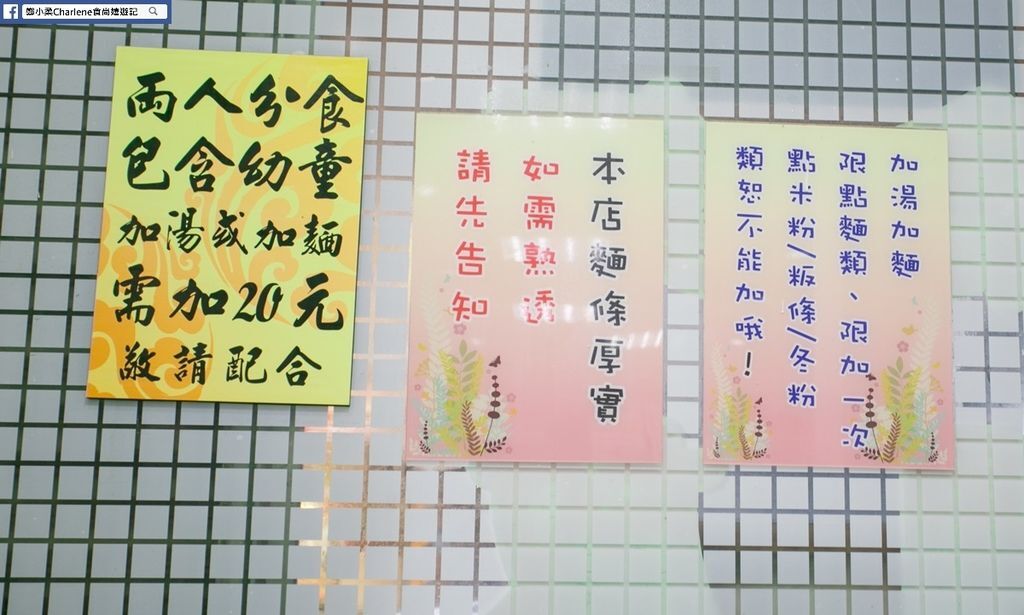 鄭小柔Charlene食尚嬉遊記
兩人分食
包含幼童
加湯或加麵
需加20元
敬請配合
本店麵條厚實
如需熟透
請先告知
加湯加麵
限點麵類、限加一次
點米粉/粄條/冬粉
類恕不能加哦!